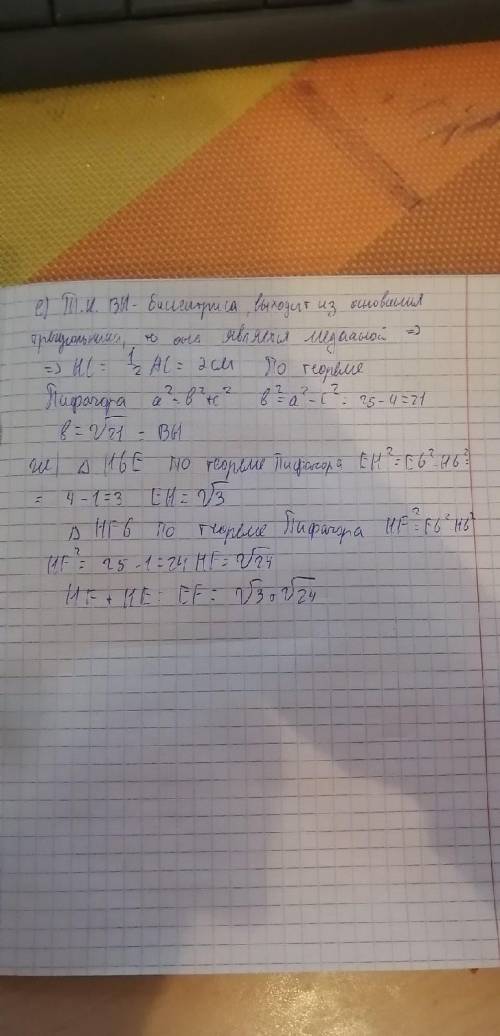 е) Т.к. ВН - биссектриса, выходит из основания
треугольника, то она является медианой ⇒
⇒ HC = 1/2 AC = 2см По теореме
Пифагора a² = b² + c² b² = a² - c² = 25 - 4 = 21
b = √21 = ВН
ж) Δ HGE по теореме Пифагора EH² = EG² - HG² =
= 4 - 1 = 3 EH = √3
Δ HFG по теореме Пифагора HF² = FG² HG²
HF² = 25 - 1 = 24 HF = √24
HF + HE = EF = √3 + √24